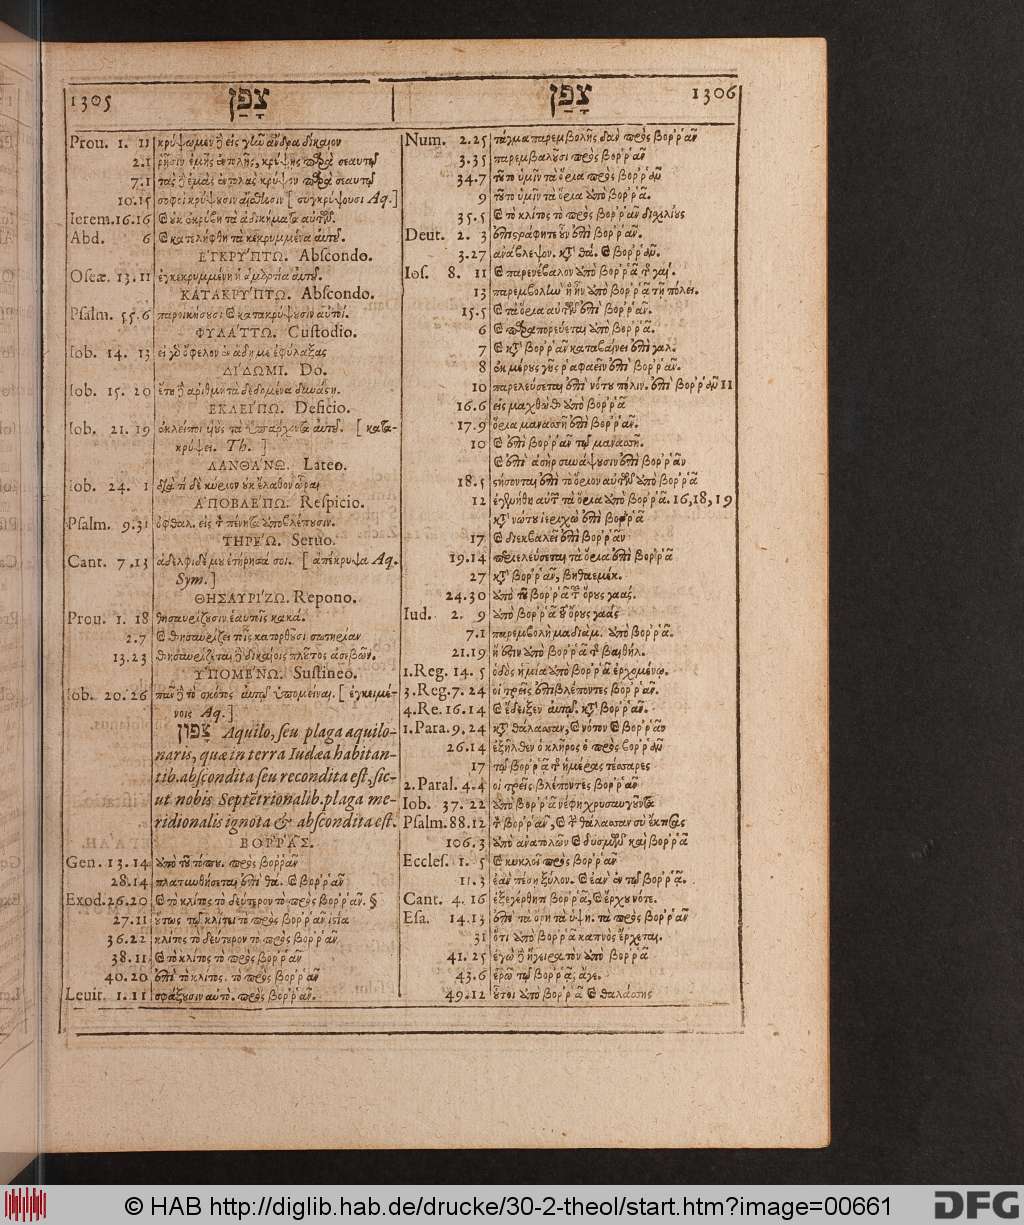 1305 צָפַן
Prou. 1. 11 κρύψωμεν ἢ εἰς γῆν ἄνδρα δίκαιον
2.1 ῥῆσιν ἐμῆς ἐντολῆς, κρύψῃς παρὰ σεαυτῷ
7.1 τὰς ἢ ἐμὰς ἐντολὰς κρύψον παρὰ σεαυτῷ
10.15 σοφοὶ κρύψουσιν αἴσθησιν [ συγκρύψουσι Aq.]
Ierem. 16.16 καὶ οὐκ ἐκρύβη τὰ ἀδικήματα αὐτῶν.
Abd. 6 καὶ κατελήφθη τὰ κεκρυμμένα αὐτοῦ.
ἘΓΚΡΥ΄ΠΤΩ. Abscondo.
Oseæ. 13.11 ἐγκεκρυμμένη ἡ ἁμαρτία αὐτοῦ.
ΚΑΤΑΚΡΥ΄ΠΤΩ. Abscondo.
Psalm. 55.6 παροικήσουσι καὶ κατακρύψουσιν αὐτοί.
ΦΥΛΑ΄ΤΤΩ. Custodio.
Iob. 14. 13 εἰ γὰρ ὄφελον ἐν ᾅδῃ με ἐφύλαξας
ΔΙ΄ΔΩΜΙ. Do.
Iob. 15. 20 ἔτη ἢ ἀριθμητὰ δεδομένα δυνάστῃ.
ἘΚΛΕΙ΄ΠΩ. Deficio.
Iob. 21. 19 ἐκλείποι υἱοὺς τὰ ὑπάρχοντα αὐτοῦ. [ κατα-
κρύψει. Th. ]
ΛΑΝΘΑ΄ΝΩ. Lateo.
Iob. 24. 1 διὰ τί δὲ κύριον οὐκ ἔλαθον ὧραι
ἈΠΟΒΛΕ΄ΠΩ. Respicio.
Psalm. 9.31 ὀφθαλ. εἰς τὸν πένητα ὑποβλέπουσιν.
ΤΗΡΕ΄Ω. Seruo.
Cant. 7.13 ἀδελφιδέ μου ἐτήρησά σοι. [ ἀπέκρυψα Aq.
Sym.]
ΘΗΣΑΥΡΙ΄ΖΩ. Repono.
Prou. 1. 18 θησαυρίζουσιν ἑαυτοῖς κακά.
2.7 καὶ θησαυρίζει τοῖς κατορθοῦσι σωτηρίαν
13.23 θησαυρίζεται ἢ δικαίοις πλοῦτος ἀσεβῶν.
ὙΠΟΜΕ΄ΝΩ. Sustineo.
Iob. 20. 26 πᾶν ἢ τὸ σκότος αὐτῷ ὑπομεῖναι. [ ἐγκειμέ-
νοις Aq.]
צָפוֹן Aquilo, seu plaga aquilo-
naris, quæ in terra Iudæa habitan-
tib. abscondita seu recondita est, sic-
ut nobis Septẽtrionalib. plaga me-
ridionalis ignota & abscondita est.
ΒΟΡΡΑ͂Σ.
Gen. 13.14 ἀπὸ τοῦ τόπου. πρὸς βοῤῥᾶν
28.14 πλατυνθήσεται ἐπὶ θά. καὶ βοῤῥᾶν
Exod. 26.20 καὶ τὸ κλίτος τὸ δεύτερον τὸ πρὸς βοῤῥᾶν. §
27.11 οὕτως τῷ κλίτει τὸ πρὸς βοῤῥᾶν ἱστία
36.22 κλίτος τὸ δεύτερον τὸ πρὸς βοῤῥᾶν
38.11 καὶ τὸ κλίτος τὸ πρὸς βοῤῥᾶν
40.20 ἐπὶ τὸ κλίτος. τὸ πρὸς βοῤῥᾶν
Leuit. 1.11 σφάξουσιν αὐτὸ. πρὸς βοῤῥᾶν.
צָפַן 1306
Num. 2.25 τάγμα παρεμβολῆς δὰν πρὸς βοῤῥᾶν
3.35 παρεμβαλοῦσι πρὸς βοῤῥᾶν
34.7 τοῦτο ὑμῖν τὰ ὅρια πρὸς βοῤῥᾶν
9 τοῦτο ὑμῖν τὰ ὅρια ἀπὸ βοῤῥᾶ.
35.5 καὶ τὸ κλίτος τὸ πρὸς βοῤῥᾶν δισχιλίους
Deut. 2. 3 ἐπιστράφητε οὖν ἐπὶ βοῤῥᾶν.
3.27 ἀνάβλεψον. κατὰ θά. καὶ βοῤῥᾶν.
Ios. 8. 11 καὶ παρενέβαλον ἀπὸ βοῤῥᾶ τῆς γαί.
13 παρεμβολὴν ἣ ἦν ἀπὸ βοῤῥᾶ τῇ πόλει.
15.5 καὶ τὰ ὅρια αὐτῶν ἐπὶ βοῤῥᾶν.
6 καὶ παραπορεύεται ἀπὸ βοῤῥᾶ.
7 καὶ κατὰ βοῤῥᾶν καταβαίνει ἐπὶ γαλ.
8 ἐκ μέρους γῆς ῥαφαεὶν ἐπὶ βοῤῥᾶν.
10 παρελεύσεται ἐπὶ νότου πόλιν. ἐπὶ βοῤῥᾶν 11
16.6 εἰς μαχθὼθ ἀπὸ βοῤῥᾶ
17.9 ὅρια μανασσῆ ἐπὶ βοῤῥᾶν.
10 καὶ ἐπὶ βοῤῥᾶν τῷ μανασσῆ.
καὶ ἐπὶ ἀσὴρ συνάψουσιν ἐπὶ βοῤῥᾶν
18.5 στήσονται ἐπὶ τὸ ὅριον αὐτῶν ἀπὸ βοῤῥᾶ
12 ἐγενήθη αὐτῶν τὰ ὅρια ἀπὸ βοῤῥᾶ. 16,18,19
κατὰ νώτου ἱεριχὼ ἐπὶ βοῤῥᾶ
17 καὶ διεκβαλεῖ ἐπὶ βοῤῥᾶν
19.14 περιελεύσεται τὰ ὅρια ἐπὶ βοῤῥᾶ
27 κατὰ βοῤῥᾶν, βηθαεμέκ.
24.30 ἀπὸ τοῦ βοῤῥᾶ τοῦ ὄρους γαάς.
Iud. 2. 9 ἀπὸ βοῤῥᾶ τοῦ ὄρους γαάς
7.1 παρεμβολὴ μαδιάμ. ἀπὸ βοῤῥᾶ.
21.19 ἥ ἐστιν ἀπὸ βοῤῥᾶ τῆς βαιθήλ.
1.Reg. 14. 5 ὁδὸς ἡ μία ἀπὸ βοῤῥᾶ ἐρχομένῳ.
3.Reg. 7. 24 οἱ τρεῖς ἐπιβλέποντες βοῤῥᾶν.
4.Re. 16.14 καὶ ἔδειξεν αὐτῷ. κατὰ βοῤῥᾶν.
1.Para. 9.24 κατὰ θάλασσαν, καὶ νότον καὶ βοῤῥᾶν
26.14 ἐξῆλθεν ὁ κλῆρος ὁ πρὸς βοῤῥᾶν
17 τῷ βοῤῥᾷ τῆς ἡμέρας τέσσαρες
2.Paral. 4.4 οἱ τρεῖς βλέποντες βοῤῥᾶν
Iob. 37. 22 ἀπὸ βοῤῥᾶ νέφη χρυσαυγοῦντα
Psalm. 88.12 τὸν βοῤῥᾶν, καὶ τὴν θάλασσαν σὺ ἔκτισας
106.3 ἀπὸ ἀνατολῶν καὶ δυσμῶν καὶ βοῤῥᾶ
Eccles. 1. 5 καὶ κυκλοῖ πρὸς βοῤῥᾶν
11.3 ἐὰν πέσῃ ξύλον. καὶ ἐὰν ἐν τῷ βοῤῥᾷ.
Cant. 4. 16 ἐξεγέρθητι βοῤῥᾶ, καὶ ἔρχου νότε.
Esa. 14.13 ἐπὶ τὰ ὄρη τὰ ὑψη. τὰ πρὸς βοῤῥᾶν
31 ὅτι ἀπὸ βοῤῥᾶ καπνὸς ἔρχεται.
41. 25 ἐγὼ ἢ ἤγειρα τὸν ἀπὸ βοῤῥᾶ
43.6 ἐρῶ τῷ βοῤῥᾷ, ἄγε.
49.12 οὗτοι ἀπὸ βοῤῥᾶ καὶ θαλάσσης
© HAB http://diglib.hab.de/drucke/30-2-theol/start.htm?image=00661
DFG